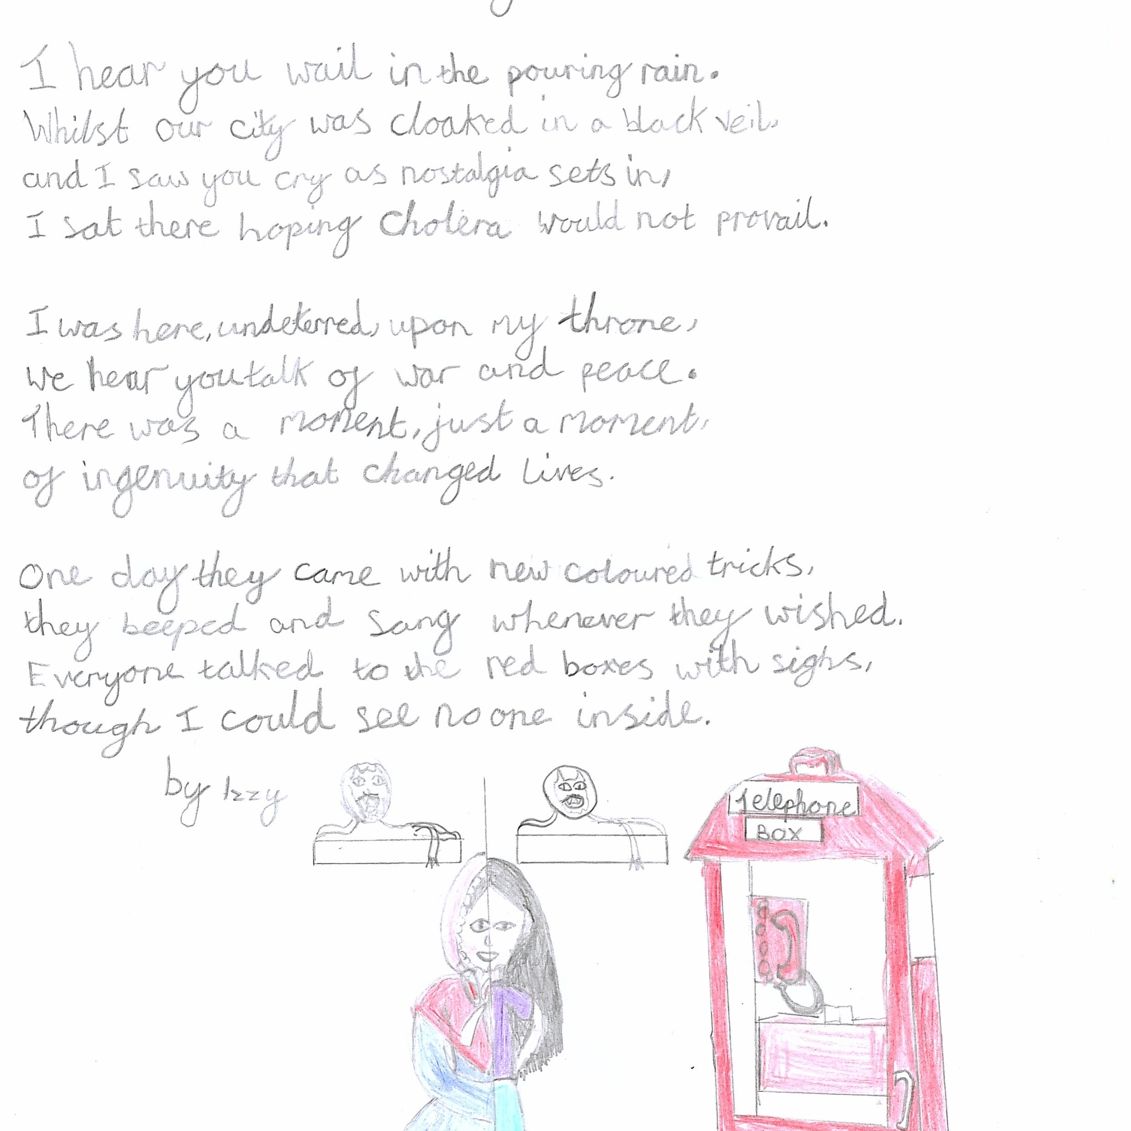 I hear you wail in the pouring rain.
Whilst our city was cloaked in a black veil,
and I saw you cry as nostalgia sets in,
I sat there hoping cholera would not provail.
I was here, undeterred, upon my throne,
we hear you talk of war and peace.
There was a moment, just a moment,
of ingenuity that changed lives.
One day they came with new coloured tricks,
they beeped and sang whenever they wished.
Everyone talked to the red boxes with sighs,
though I could see no one inside.
by Izzy
Telephone
BOX